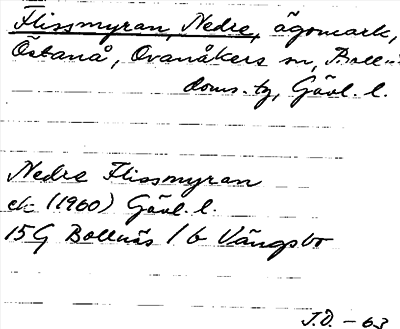 Flissmyran, Nedre, ägomark,
Östanå, Ovanåkers sn, Bolln
doms. tg, Gävl. l.
Nedre Flissmyran
ek (1960) Gävl. l.
15G Bollnäs / b Vängsbo
J.O. – 63